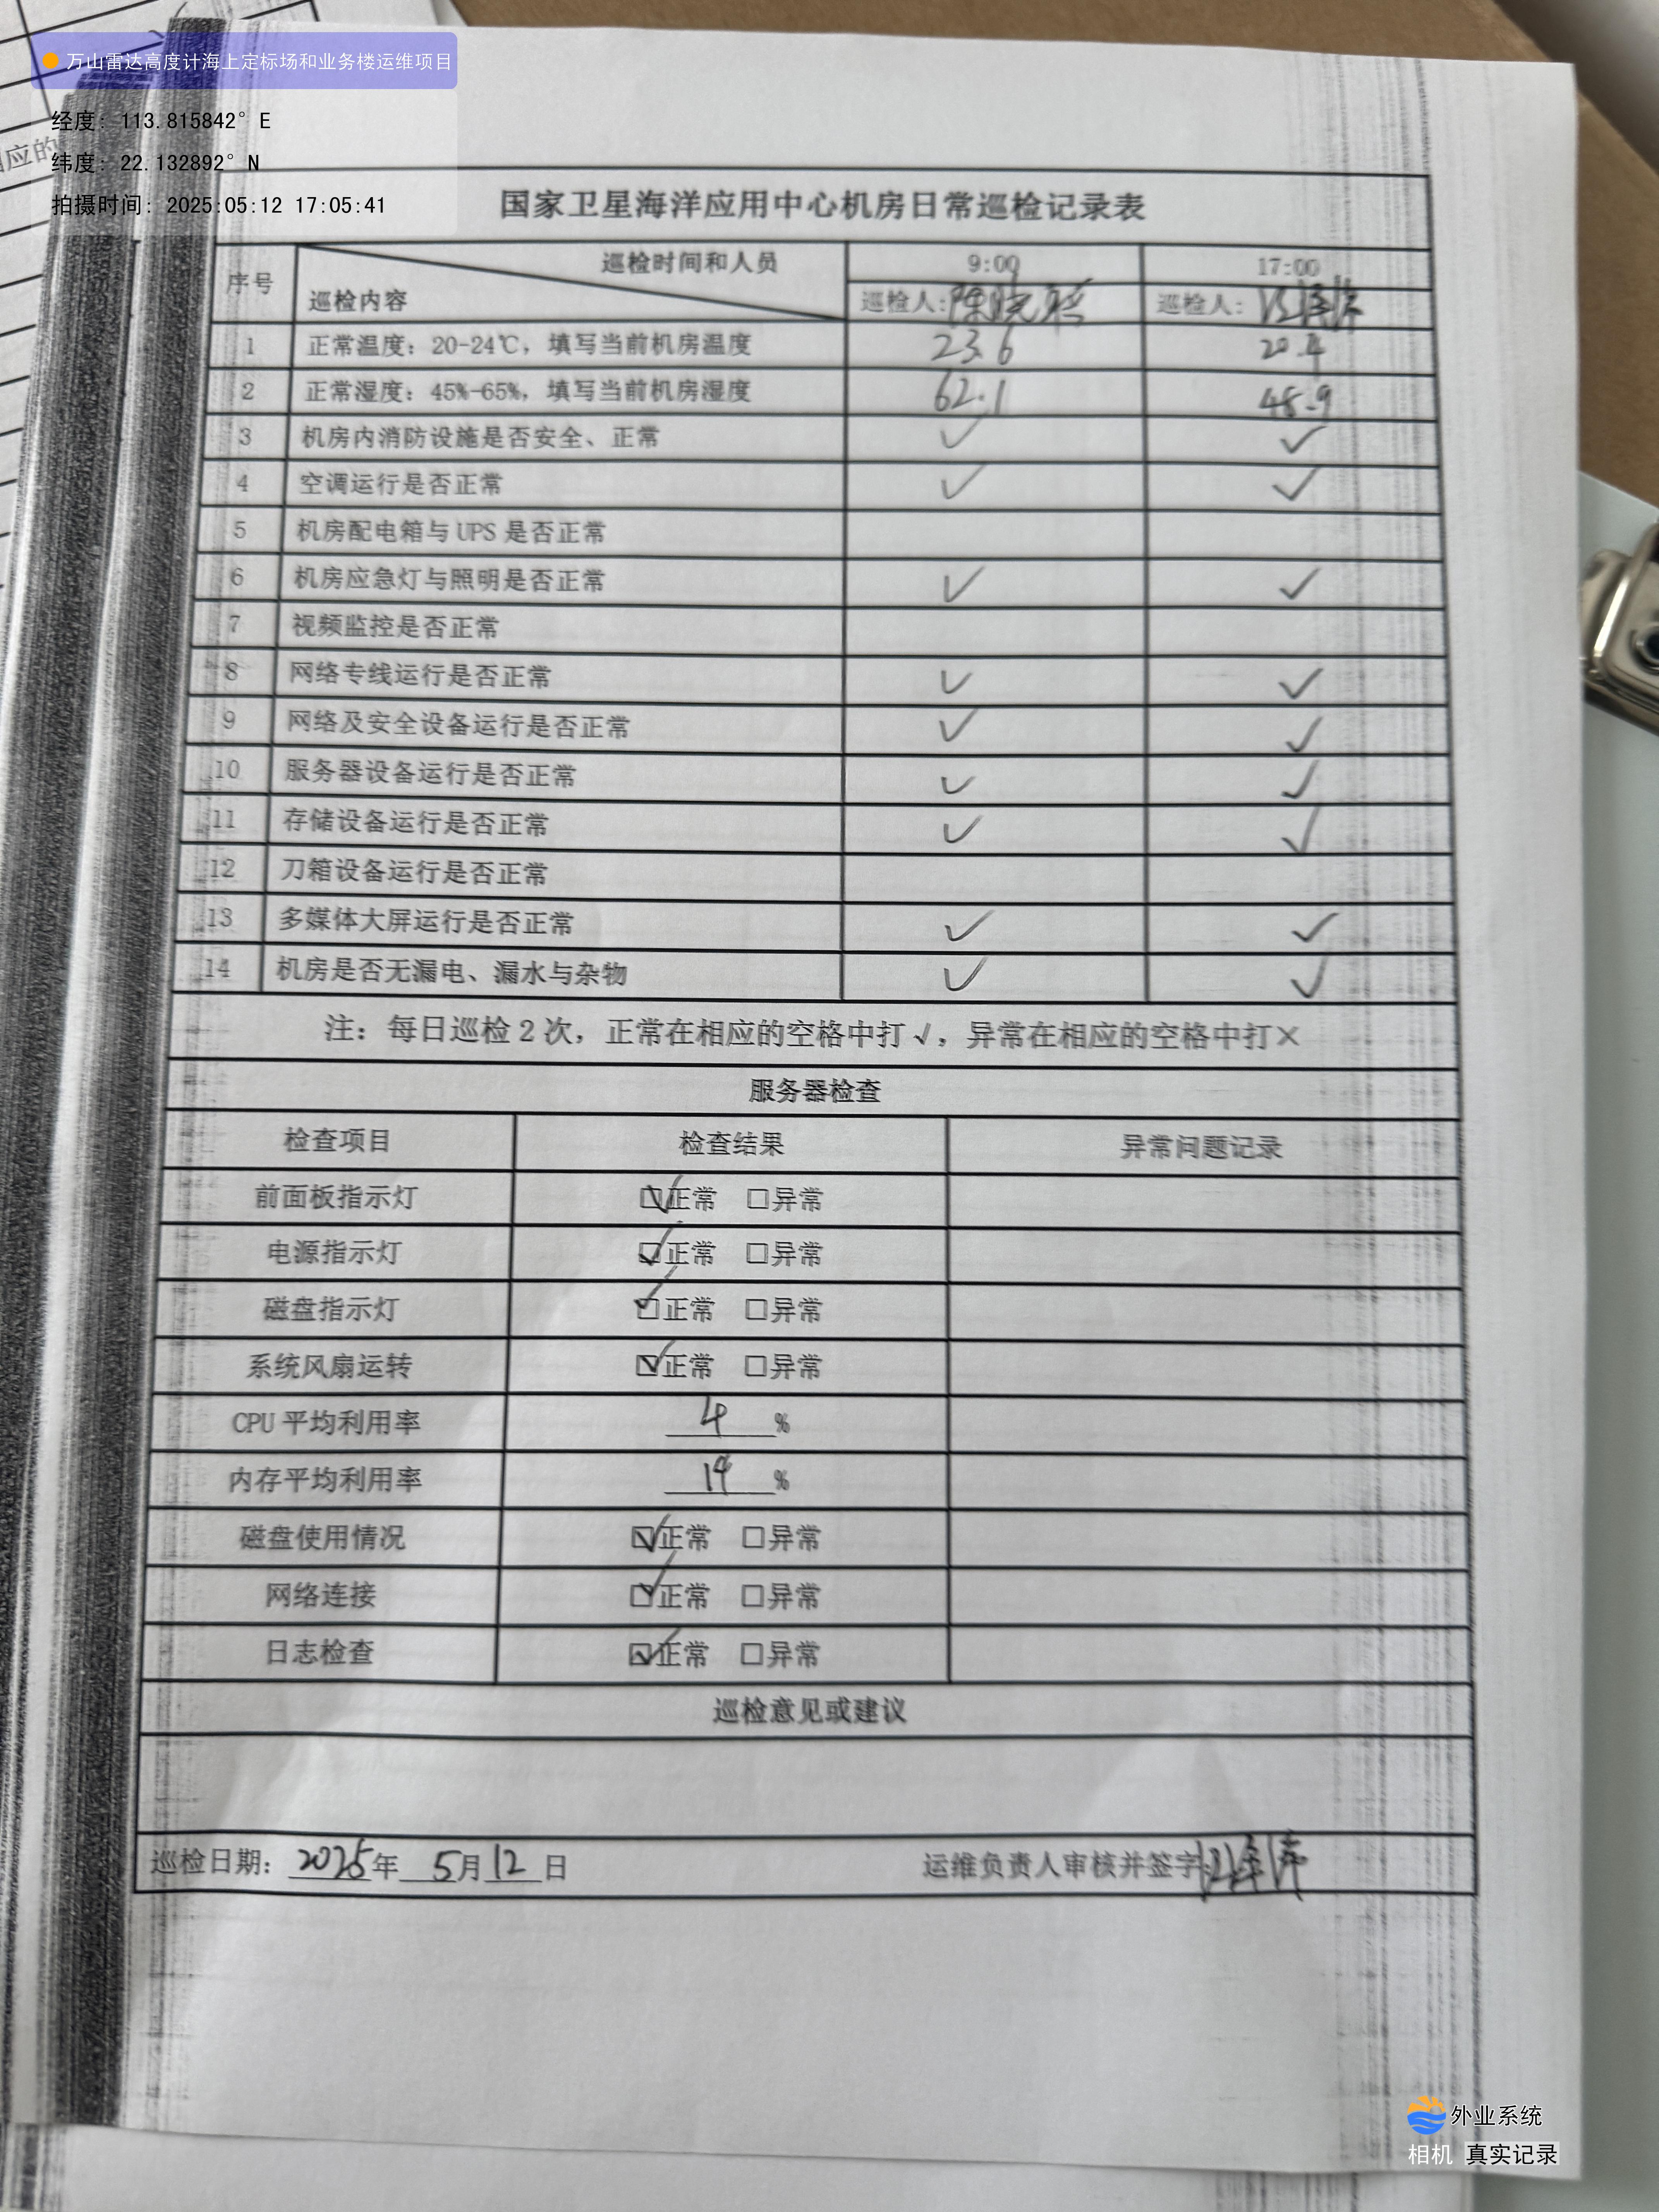 万山雷达高度计海上定标场和业务楼运维项目
经度: 113.815842° E
纬度: 22.132892° N
拍摄时间: 2025:05:12 17:05:41
国家卫星海洋应用中心机房日常巡检记录表
序号 巡检时间和人员 巡检内容 9:00 17:00
巡检人: 巡检人:
1 正常温度：20-24℃，填写当前机房温度 23.6 20.4
2 正常湿度：45%-65%，填写当前机房湿度 62.1 48.9
3 机房内消防设施是否安全、正常 ✓ ✓
4 空调运行是否正常 ✓ ✓
5 机房配电箱与 UPS 是否正常
6 机房应急灯与照明是否正常 ✓ ✓
7 视频监控是否正常
8 网络专线运行是否正常 ✓ ✓
9 网络及安全设备运行是否正常 ✓ ✓
10 服务器设备运行是否正常 ✓ ✓
11 存储设备运行是否正常 ✓ ✓
12 刀箱设备运行是否正常
13 多媒体大屏运行是否正常 ✓ ✓
14 机房是否无漏电、漏水与杂物 ✓ ✓
注：每日巡检 2 次，正常在相应的空格中打 √，异常在相应的空格中打×
服务器检查
检查项目 检查结果 异常问题记录
前面板指示灯 ☑正常 □异常
电源指示灯 ☑正常 □异常
磁盘指示灯 ☑正常 □异常
系统风扇运转 ☑正常 □异常
CPU 平均利用率 4 %
内存平均利用率 14 %
磁盘使用情况 ☑正常 □异常
网络连接 ☑正常 □异常
日志检查 ☑正常 □异常
巡检意见或建议
巡检日期： 2025年 5月12 日 运维负责人审核并签字:
外业系统
相机 真实记录